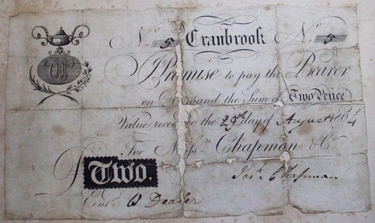 No 5 Cranbrook No 5
I Promise to pay the Bearer
on Demand the Sum of Two Pence
Value received the 29th day of August
For Chapman & Co
Two.
Jno Chapman
Entd